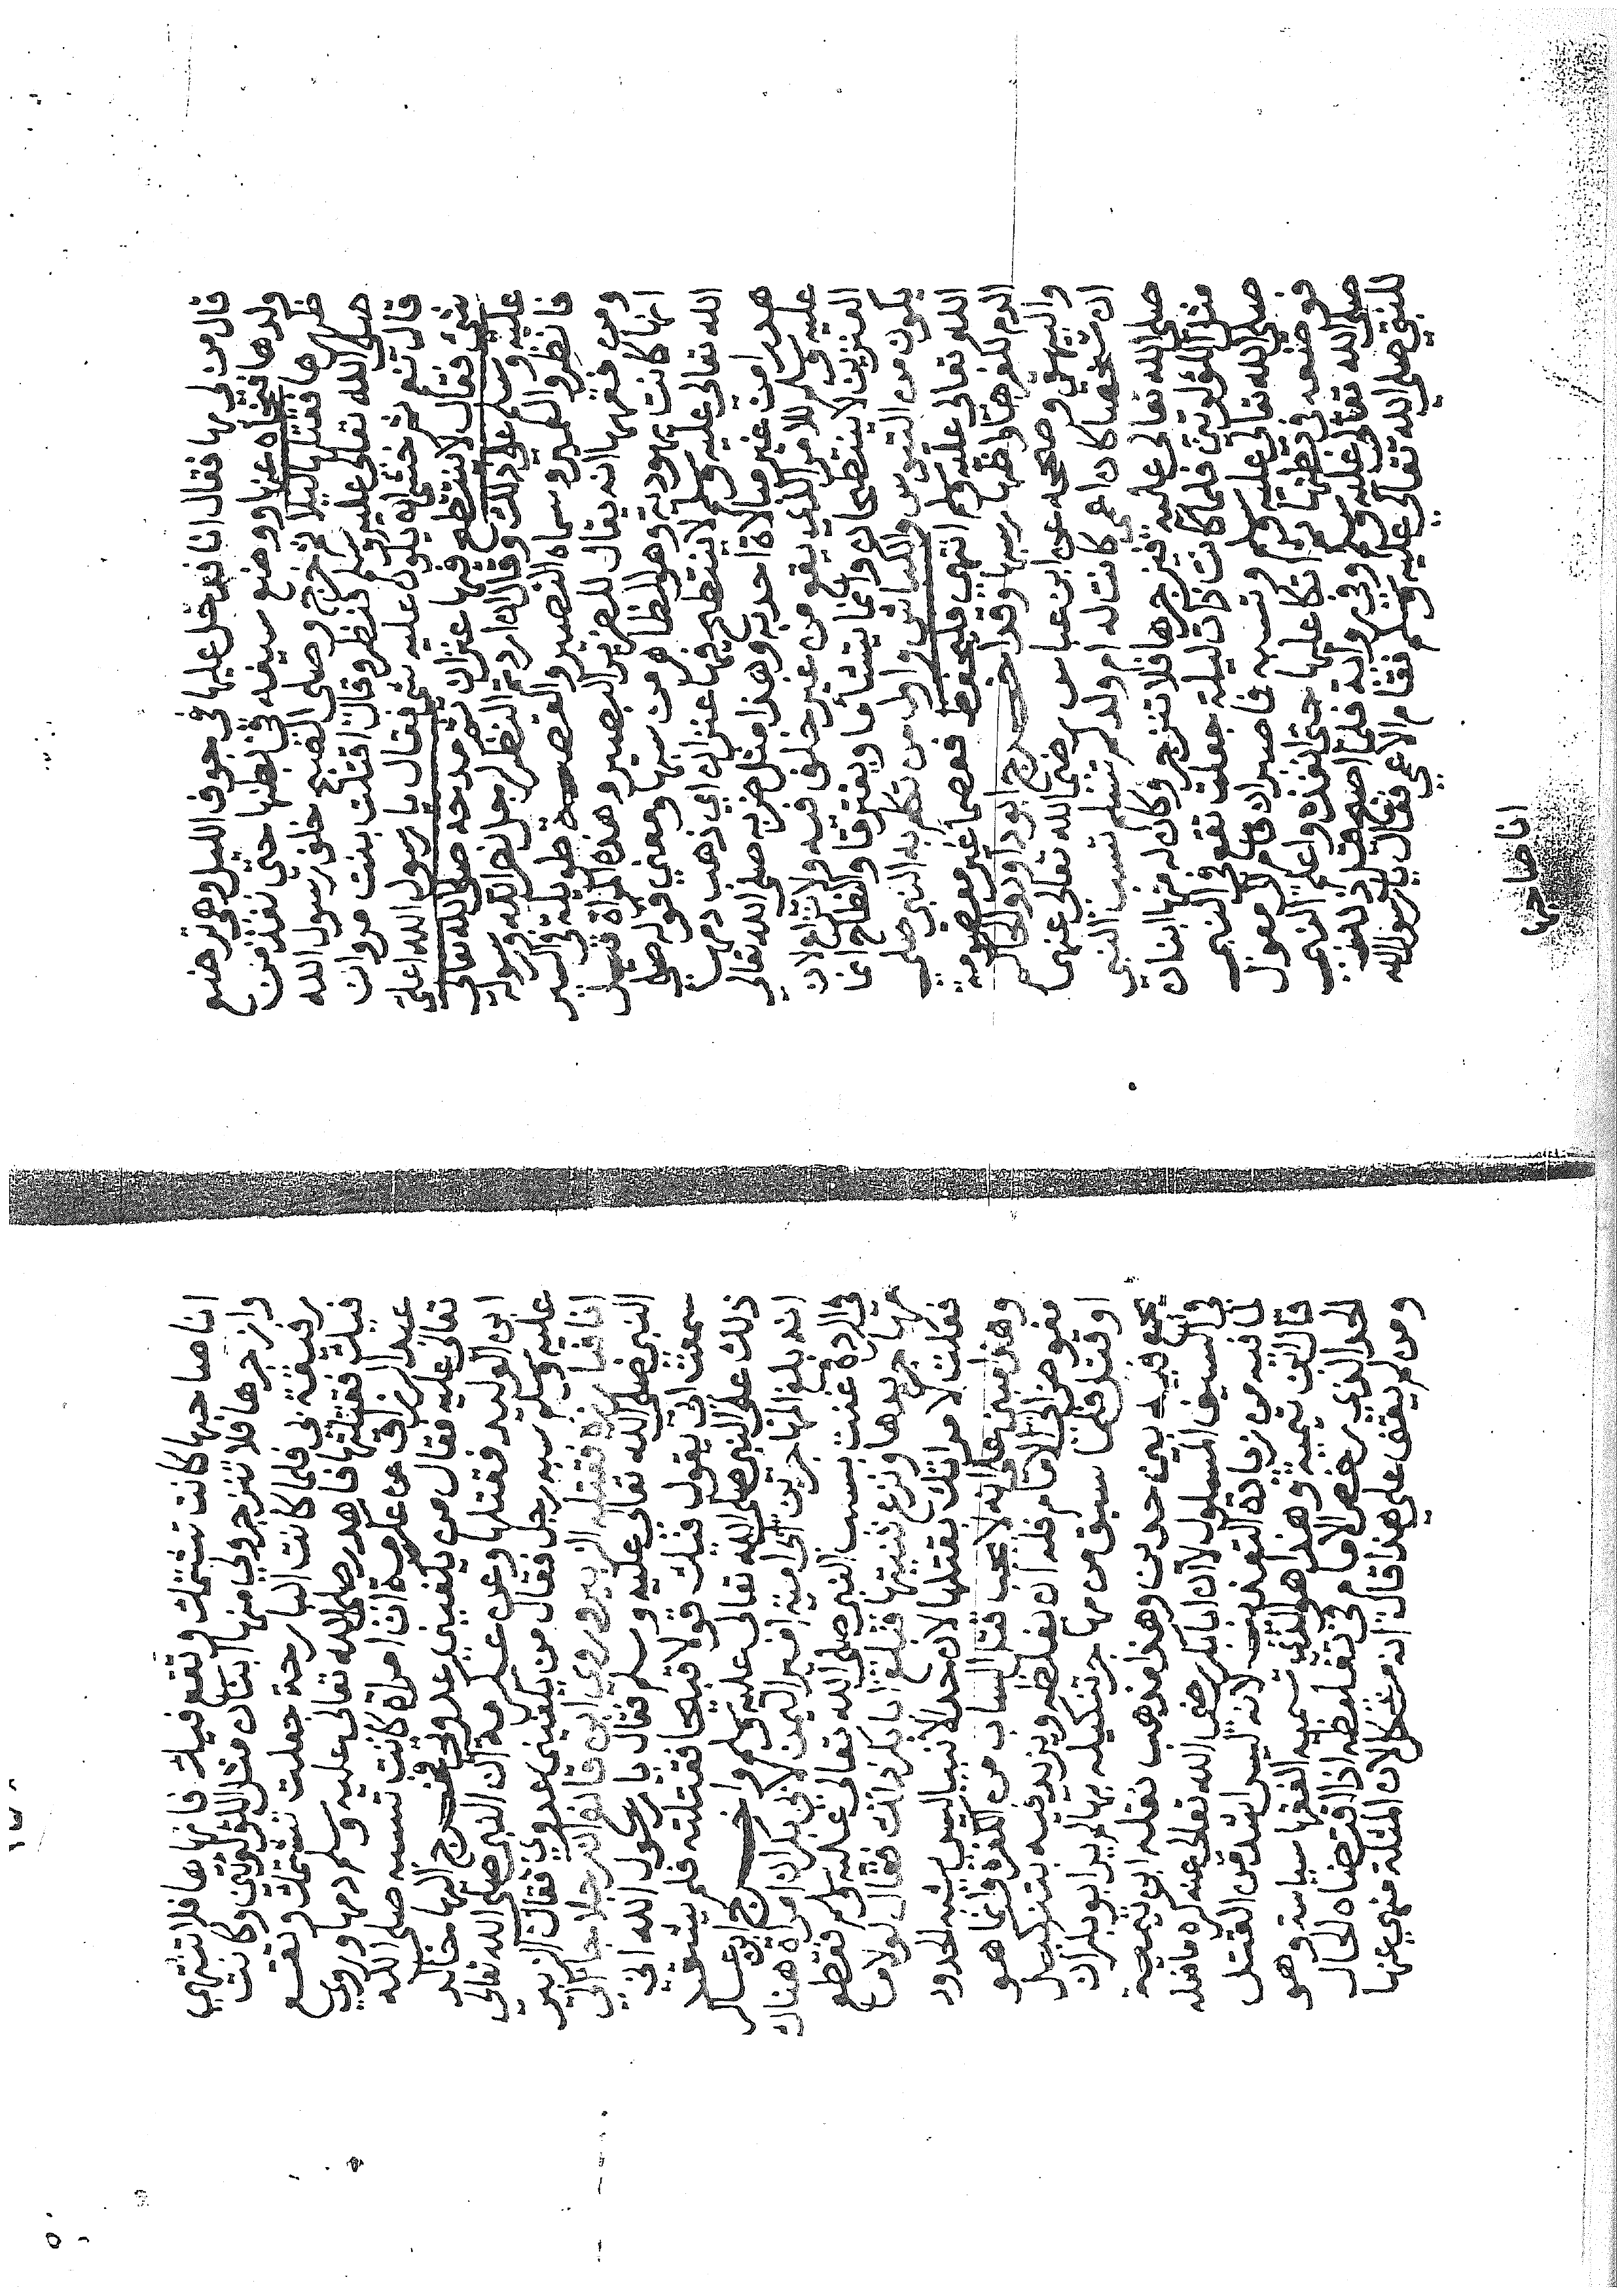 قال من لي بها فقال انا فدخل عليها في جوف الليل وهي ترضع
ولدها فنحاه عنها ووضع سيفه في بطنها حتي نفذ من
ظهرها فقتلها ليلا ثم خرج وصلى الصبح خلف رسول الله
صلى الله تعالى عليه وسلم فنظر وقال اقتلت بنت مروان
قال نعم ثم خشي ان يكون عليه شي فقال يا رسول الله اعلي
شي فقال لا ينتطح فيها عنزان ثم مدحه صلى الله تعالى
عليه وسلم على ذلك وقال ان اردتم النظر لرجل نصر الله ورسوله
فانظروا لعمير وسماه البصير والقصة طويلة في السير
ومن فقهها انه يقال للضرير البصير وهذه المراة قيل
انها كانت يهودية وهو الظاهر من سبها ومعني قوله صلى
الله تعالى عليه وسلم لا ينتطح فيها عنزان اي ذهب دمها
هدرا من غير مبالاة احد به وهذا مثل ضربه صلى الله تعالى
عليه وسلم للامر الذي يقع من غير خلف فيه ولا نزاع لان
العنزين لا ينتطحان وانما يتشاما ويفترقا والنطاح انما
يكون من التيوس والكباش واول من تكلم به النبي صلى
الله تعالى عليه وسلم انتهى فليحفظ فعصماء غير معصومة
الدم لكفرها وظهار سبها وقد اخرج ابو داود والحاكم
والبيهقي وصححه عن ابن عباس رضي الله تعالى عنهما
ان شخصا كان اعمى كانت له ام ولد تشتم تسب النبي
صلى الله تعالى عليه فيزجرها فلا تنزجر وكان له منها ابنان
مثل اللؤلؤتين فلما كانت ذات ليلة جعلت تقع في النبي
صلى الله تعالى عليه وسلم وتسبه فاصبر ان قام لا معول
فوضعه في بطنها ثم اتكا عليها حتى انفذه واعلم النبي
صلى الله تعالى عليه وسلم وفي رواية فلما اصبح قيل ذلك
للنبي صلى الله تعالى عليه وسلم فقام الاعمى فقال يا رسول الله
انا صاحبها
انا صاحبها كانت تشتمك وتقع فيك فانهاها فلا تنتهي
وازجرها فلا تنزجر ولي منها ابنان مثل اللؤلؤتين وكانت
رفيقة بي فلما كانت البارحة جعلت تشتمك وتقع
فيك فقتلتها فاهدر صلى الله تعالى عليه وسلم دمها وروى
عبد الرزاق عن عكرمة ان امراة كانت تسبه صلى الله
تعالى عليه فقال من يكفيني عدوي فخرج اليها خالد
ابن الوليد فقتلها وعن عكرمة ان النبي صلى الله تعالى
عليه وسلم سبه رجل فقال من يكفيني عدوي فقال الزبير
انا فبارزه فقتله الزبير وروى ابن قانع ان رجلا جا الى
النبي صلى الله تعالى عليه وسلم فقال يا رسول الله اني
سمعت ابي يقول فيك قولا قبيحا فقتلته فلم يشق
ذلك على النبي صلى الله تعالى عليه وسلم واخرج ابن عساكر
انه بلغ المهاجر بن ابي امية امير اليمن لابي بكر ان امراة هناك
في الردة غنت بسب النبي صلى الله تعالى عليه وسلم فقطع
يدها ونزع ثنيتها فبلغ ابا بكر ذلك فقال لولا ما
فعلت لامرتك بقتلها لان حد الانبيا ليس يشبه الحدود
وهذا مبني على انه لا يجب قتل الساب من الكفرة وانما هو
مفوض الى الامام فله ان يغلظه ويزيد فيه بتنكيل
او قتل فلما سبق من مهاجر تنكيله بها لم ير ابو بكر ان
يجمع فيه بين حدين وهذا مذهب نقله ابن تيمية
في السيف المسلول لان ابا بكر رضي الله تعالى عنه كره ما فعله
لما فيه من زيادة التعذيب لانه ليس اشد من القتل
قال ابن تيمية وهذا هو الذي تسميه الفقها سياسة وهو
الحد الذي رخص الامام في تغليظه اذا اقتضاه الحال
ومن لم يقف على هذا قال انه مشكل لان المثلة منهي عنها